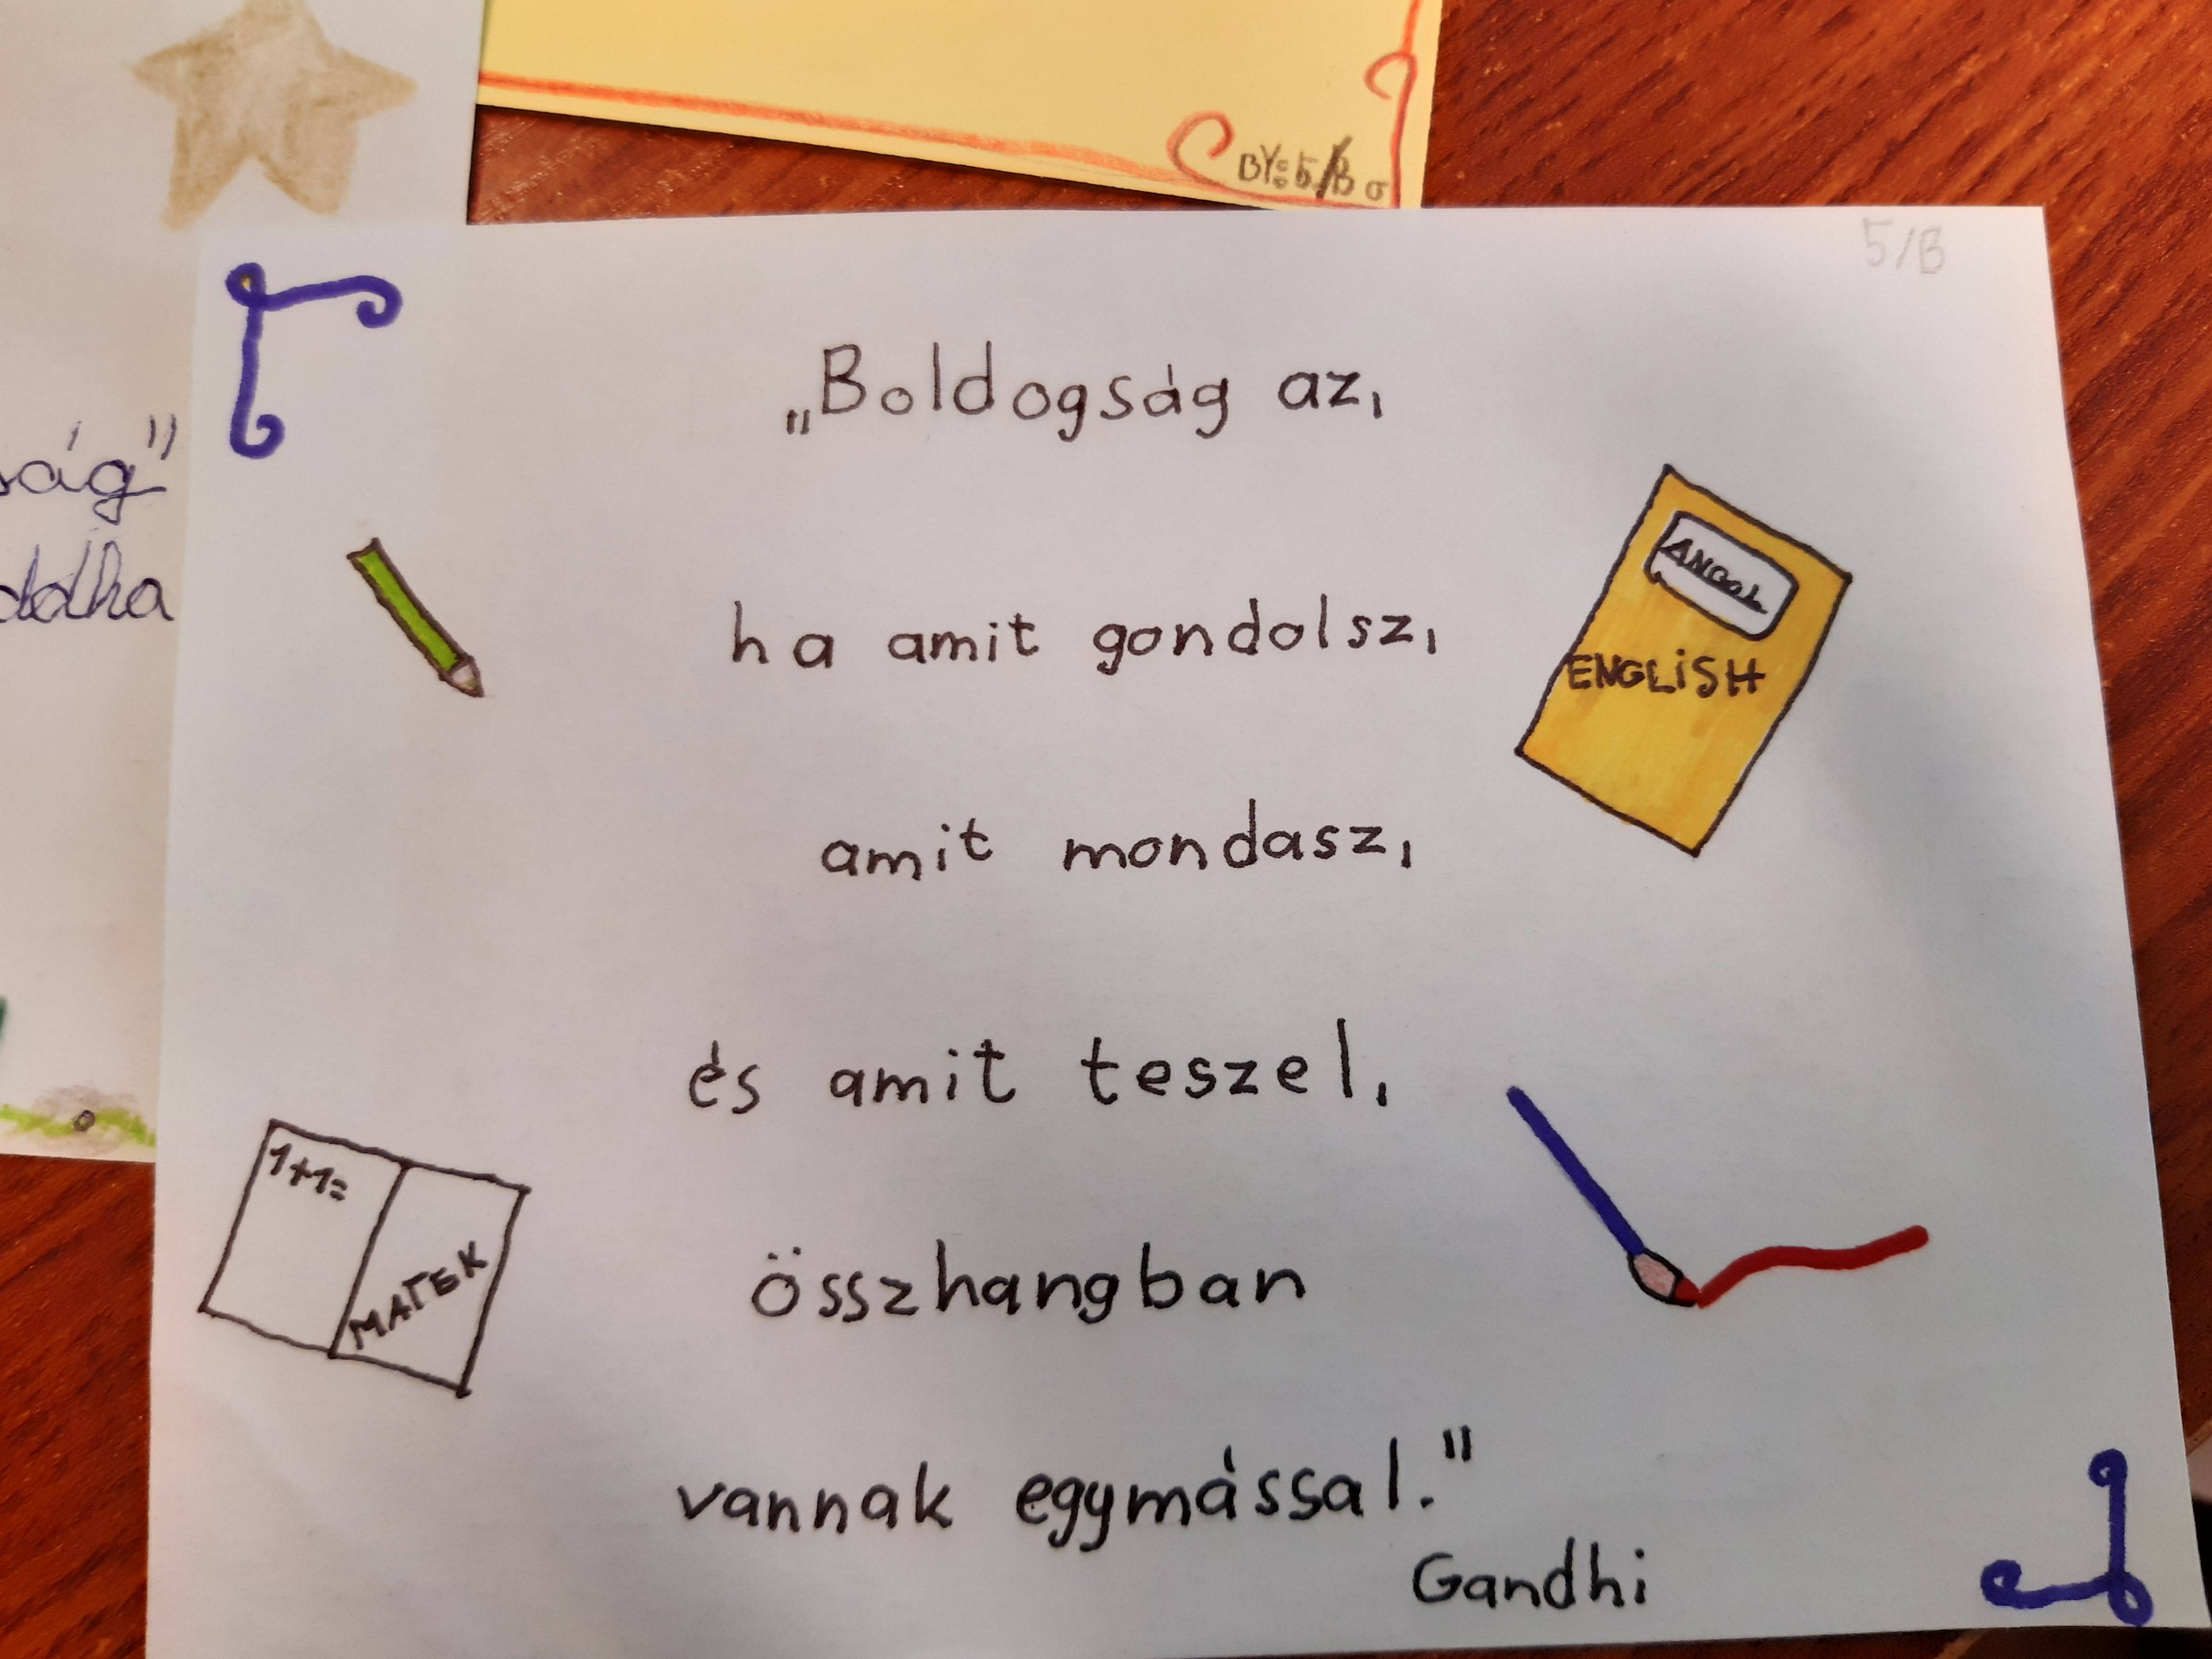 BY: 5/B σ
5/B
„Boldogság az,
ha amit gondolsz,
amit mondasz,
és amit teszel,
összhangban
vannak egymással."
Gandhi
ANGOL
ENGLISH
1+1=
MATEK
ság"
ddha